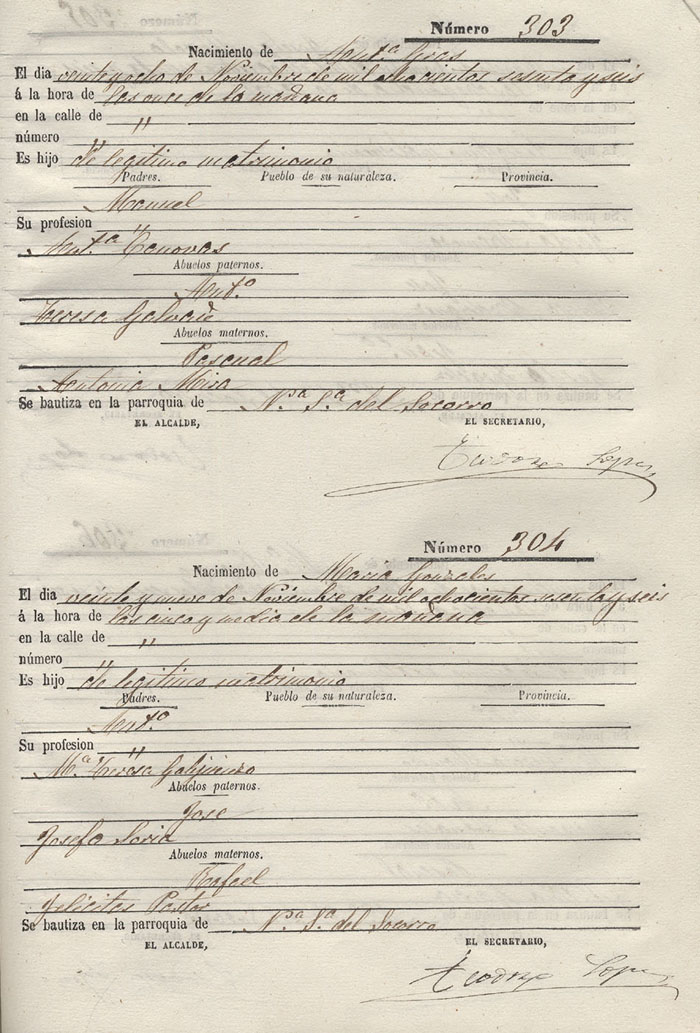 Número 303
Nacimiento de Antª Gras
El dia veinte y ocho de Noviembre de mil ochocientos sesenta y seis
á la hora de las once de la mañana
en la calle de "
número "
Es hijo de legitimo matrimonio
Padres. Pueblo de su naturaleza. Provincia.
Manuel
Su profesion "
Antª Canovas
Abuelos paternos.
Antº
Teresa
Abuelos maternos.
Pascual
Antonia Mira
Se bautiza en la parroquia de Nª Sª del Socorro
EL ALCALDE, EL SECRETARIO,
Teodoro Lopez
Número 304
Nacimiento de Maria Gonzales
El dia veinte y nueve de Noviembre de mil ochocientos sesenta y seis
á la hora de las cinco y media de la mañana
en la calle de "
número "
Es hijo de legitimo matrimonio
Padres. Pueblo de su naturaleza. Provincia.
Antº
Su profesion "
Mª Teresa
Abuelos paternos.
Jose
Josefa Soria
Abuelos maternos.
Rafael
Felicitas Pastor
Se bautiza en la parroquia de Nª Sª del Socorro
EL ALCALDE, EL SECRETARIO,
Teodoro Lopez